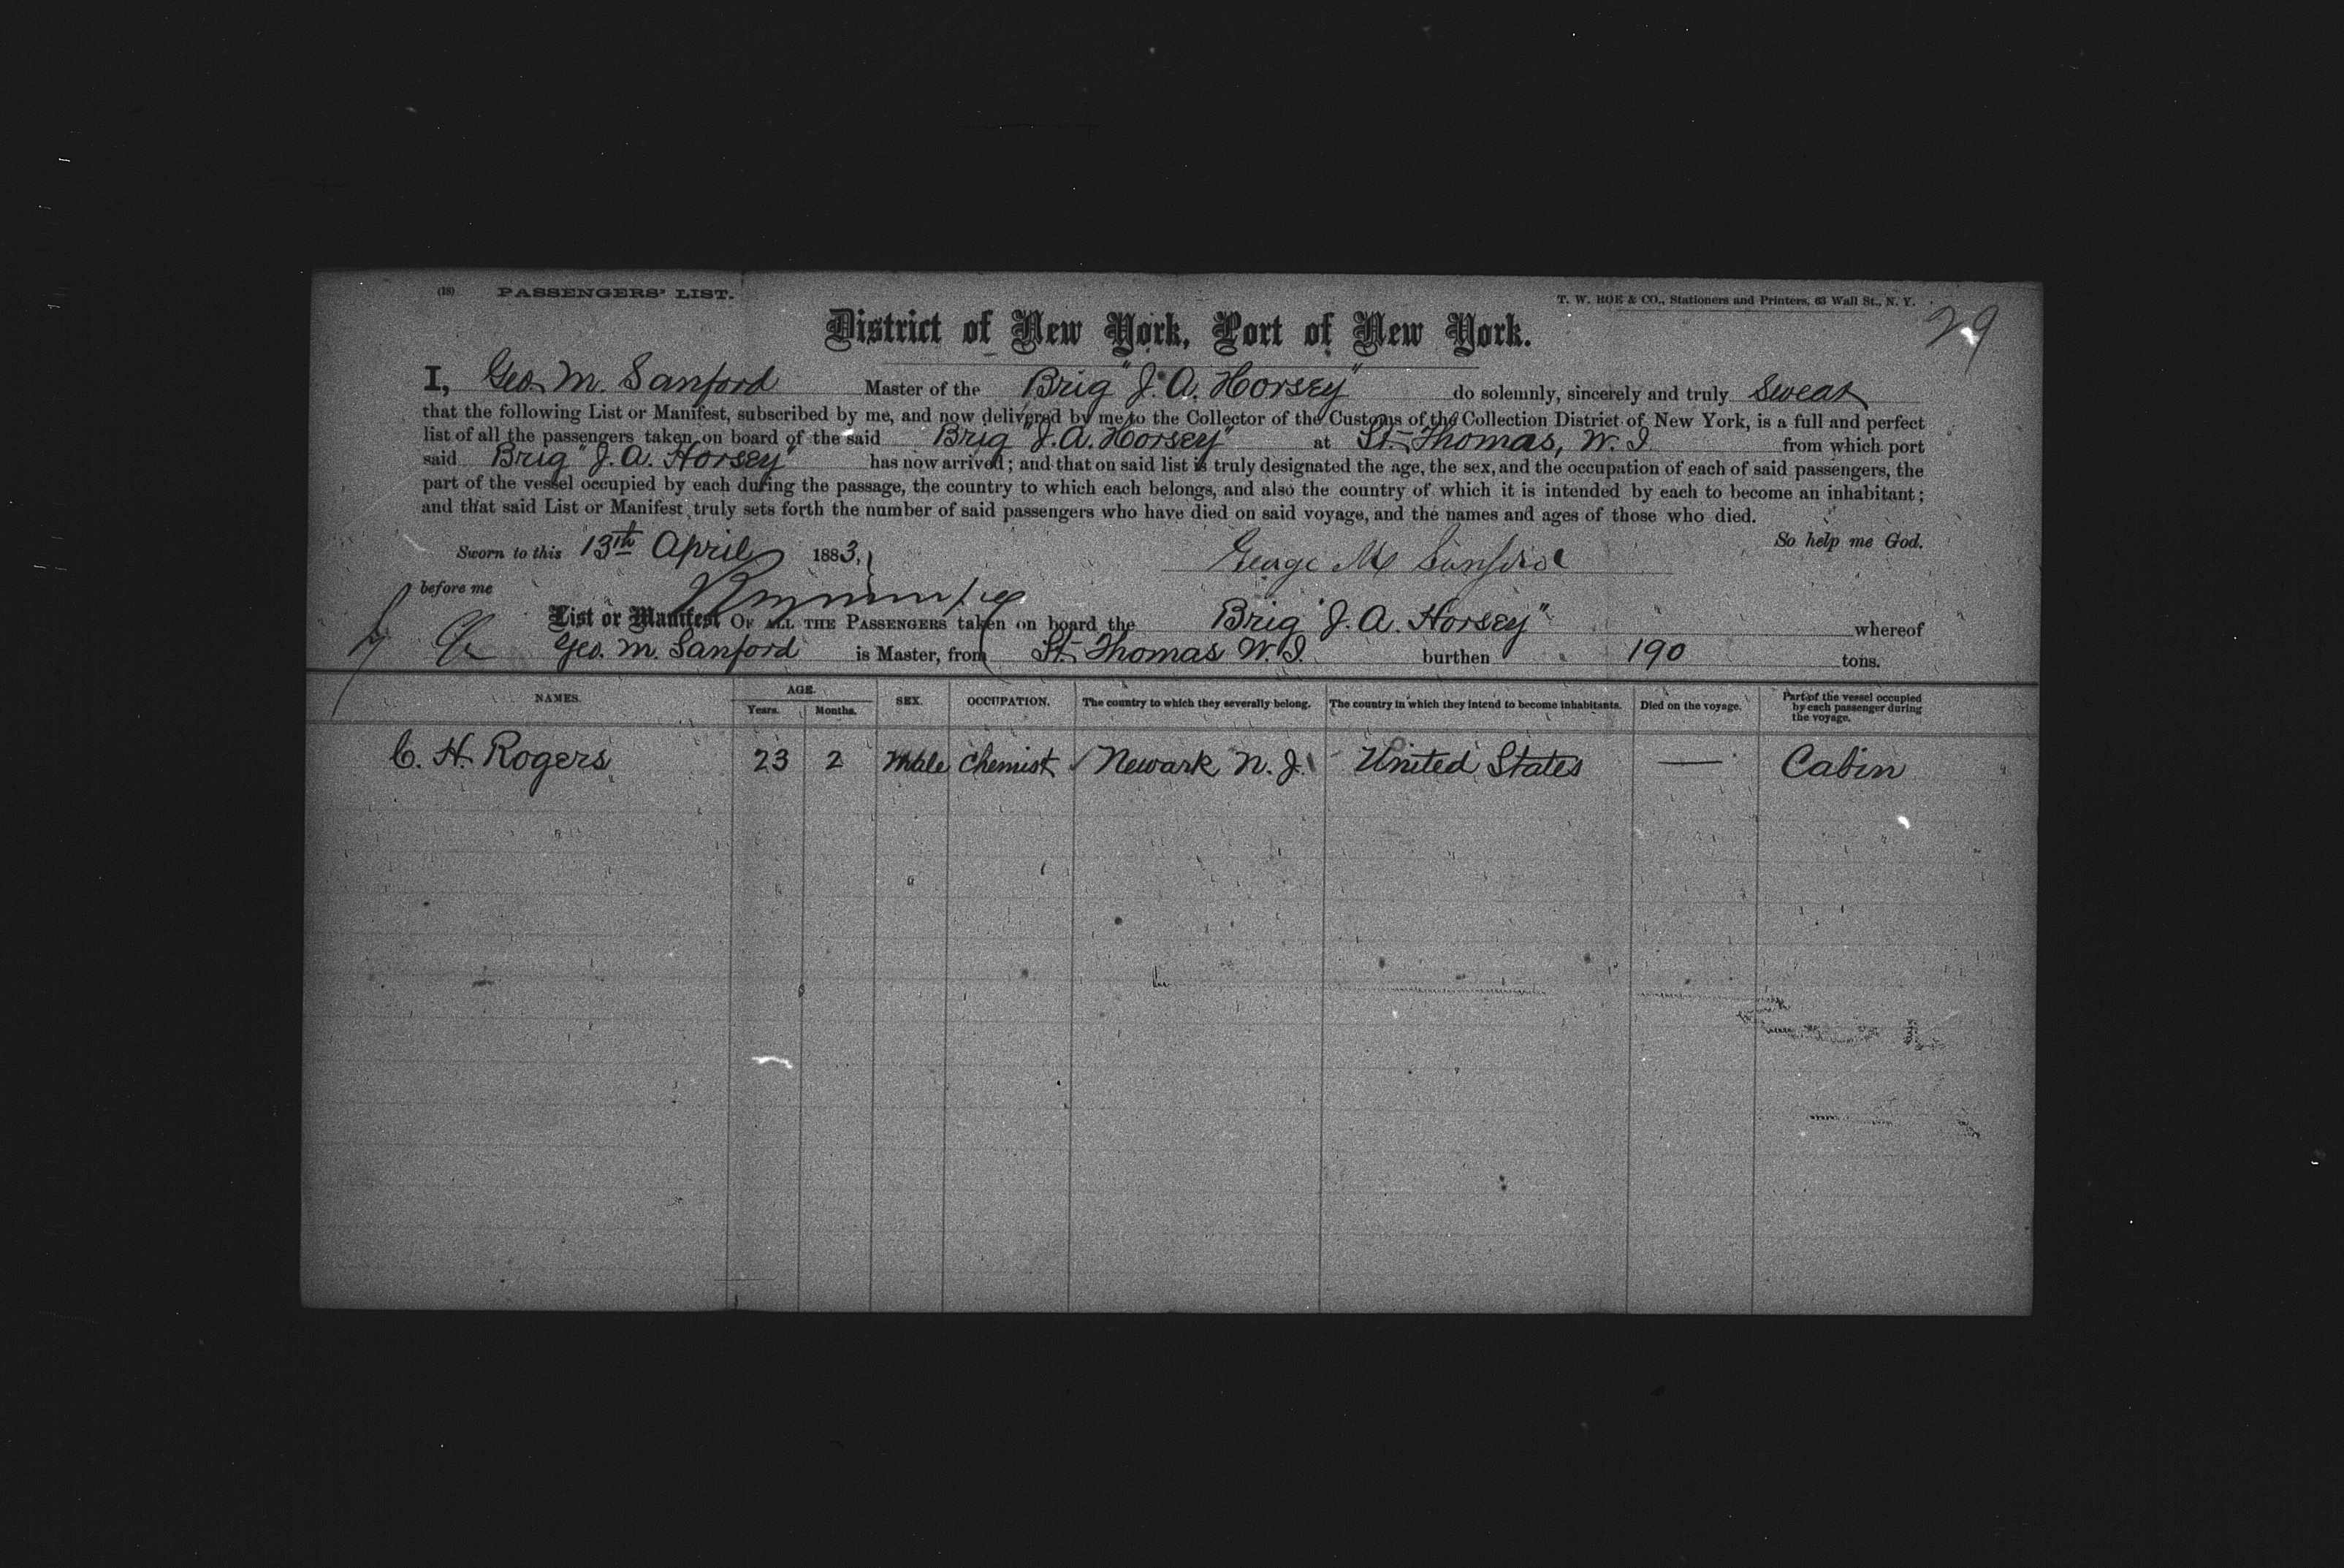 (18) PASSENGERS' LIST.
T. W. ROE & CO., Stationers and Printers, 63 Wall St., N. Y.
29
District of New York, Port of New York.
I, Geo. M. Sanford Master of the Brig "J. A. Horsey" do solemnly, sincerely and truly Swear
that the following List or Manifest, subscribed by me, and now delivered by me to the Collector of the Customs of the Collection District of New York, is a full and perfect
list of all the passengers taken on board of the said Brig "J. A. Horsey" at St. Thomas, W. I. from which port
said Brig "J. A. Horsey" has now arrived; and that on said list is truly designated the age, the sex, and the occupation of each of said passengers, the
part of the vessel occupied by each during the passage, the country to which each belongs, and also the country of which it is intended by each to become an inhabitant;
and that said List or Manifest truly sets forth the number of said passengers who have died on said voyage, and the names and ages of those who died.
So help me God.
Sworn to this 13th April 1883, George M Sanford
before me
List or Manifest OF ALL THE PASSENGERS taken on board the Brig "J. A. Horsey" whereof
Geo. M. Sanford is Master, from St. Thomas W. I. burthen 190 tons.
NAMES. AGE. Years. Months. SEX. OCCUPATION. The country to which they severally belong. The country in which they intend to become inhabitants. Died on the voyage. Part of the vessel occupied by each passenger during the voyage.
C. H. Rogers 23 2 Male Chemist Newark N. J. United States — Cabin